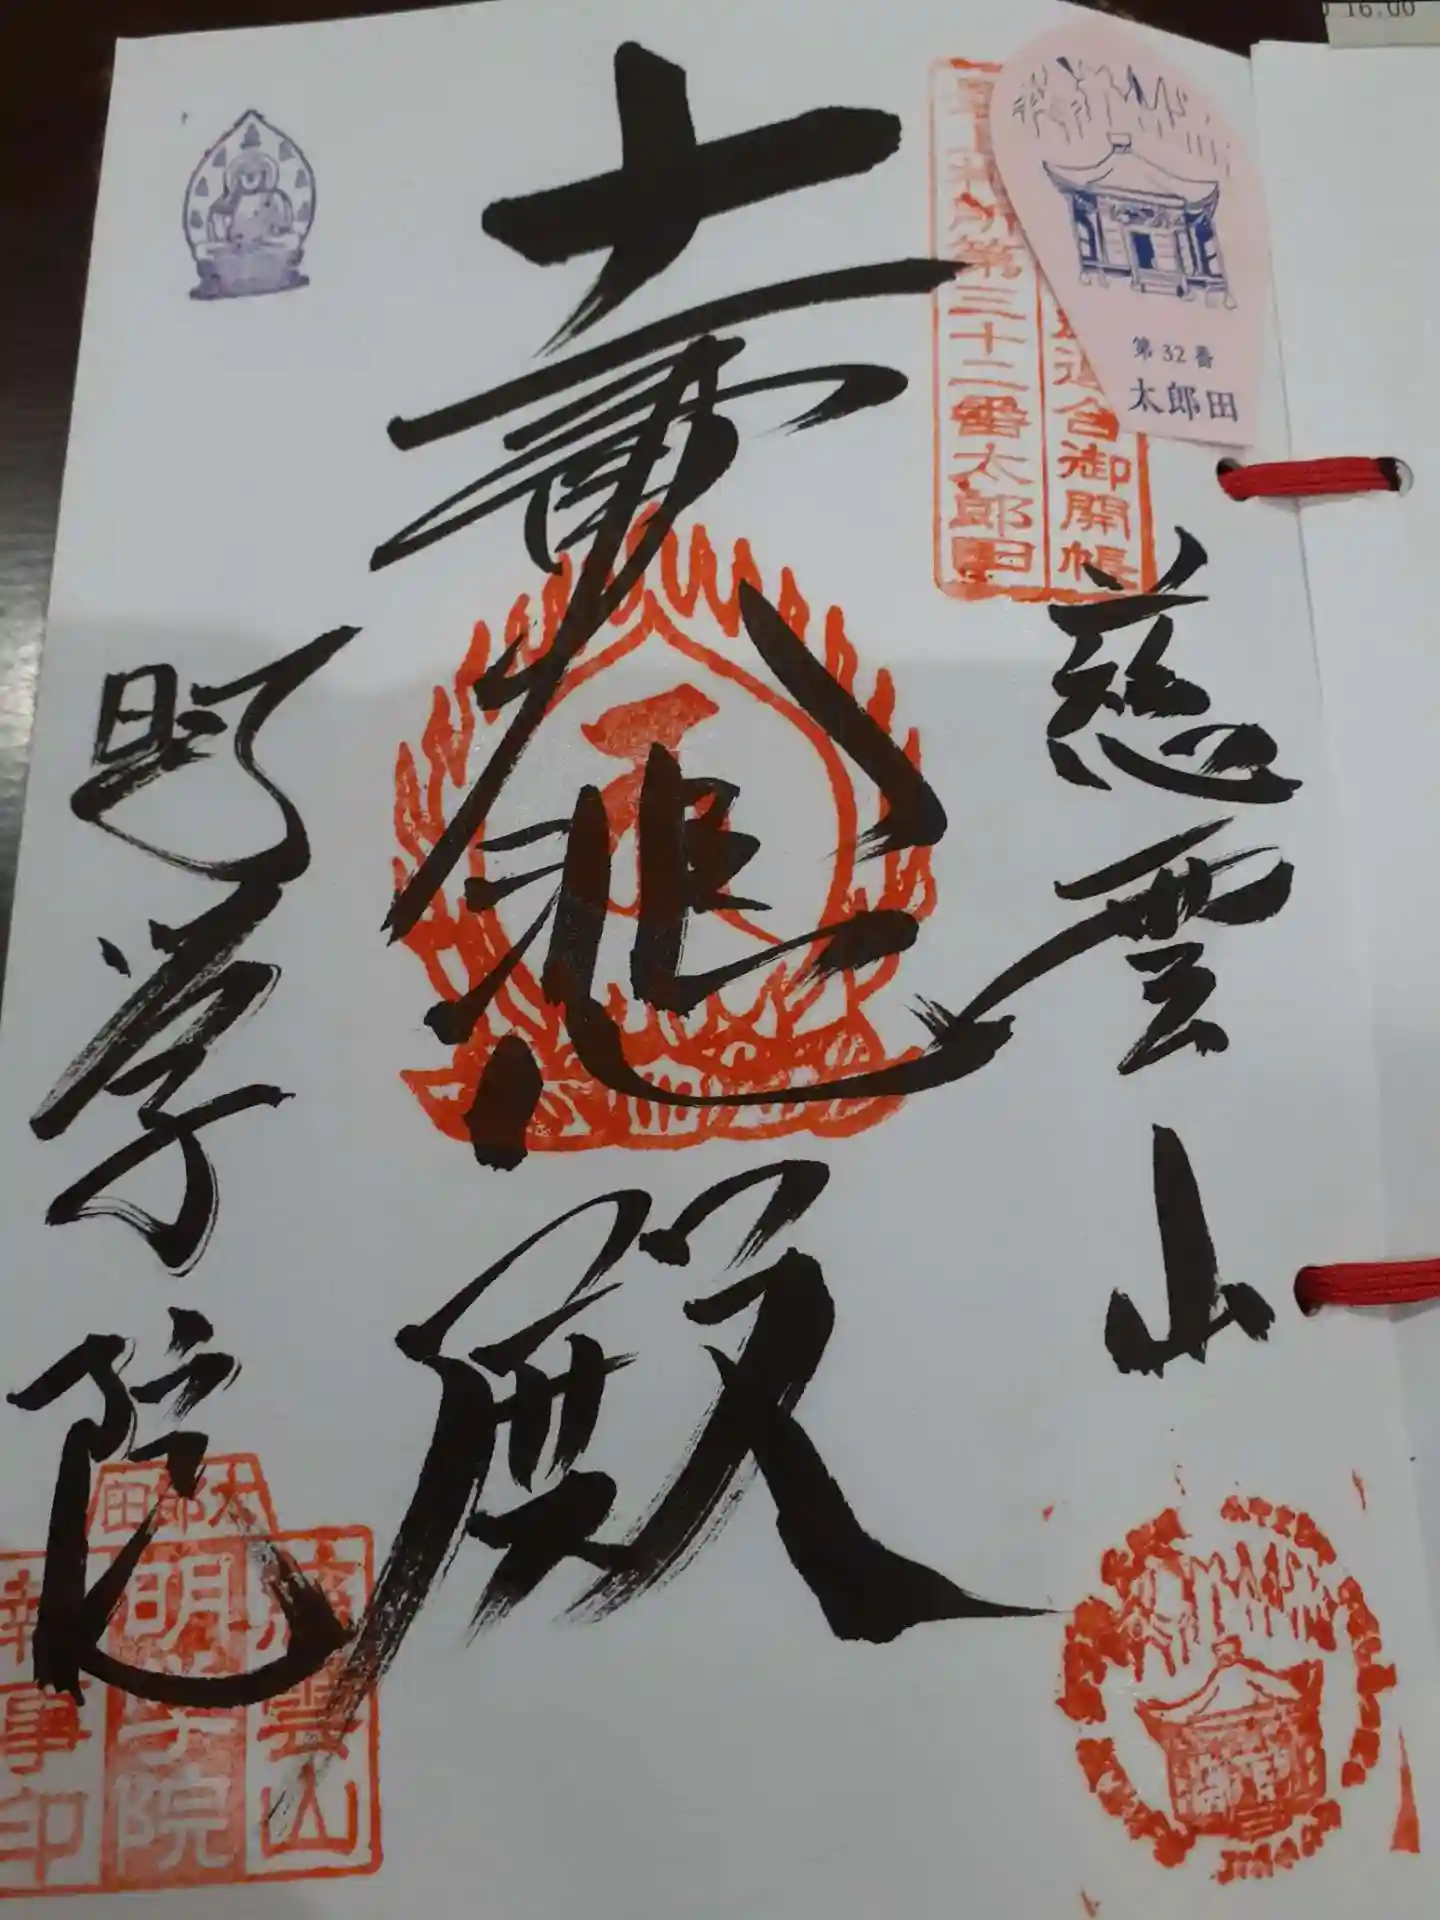 16.00
第32番
太郎田
所第三十二番太郎田
御開帳
慈雲山
悲殿
明学院
太郎田
慈雲山
明学院
執事印